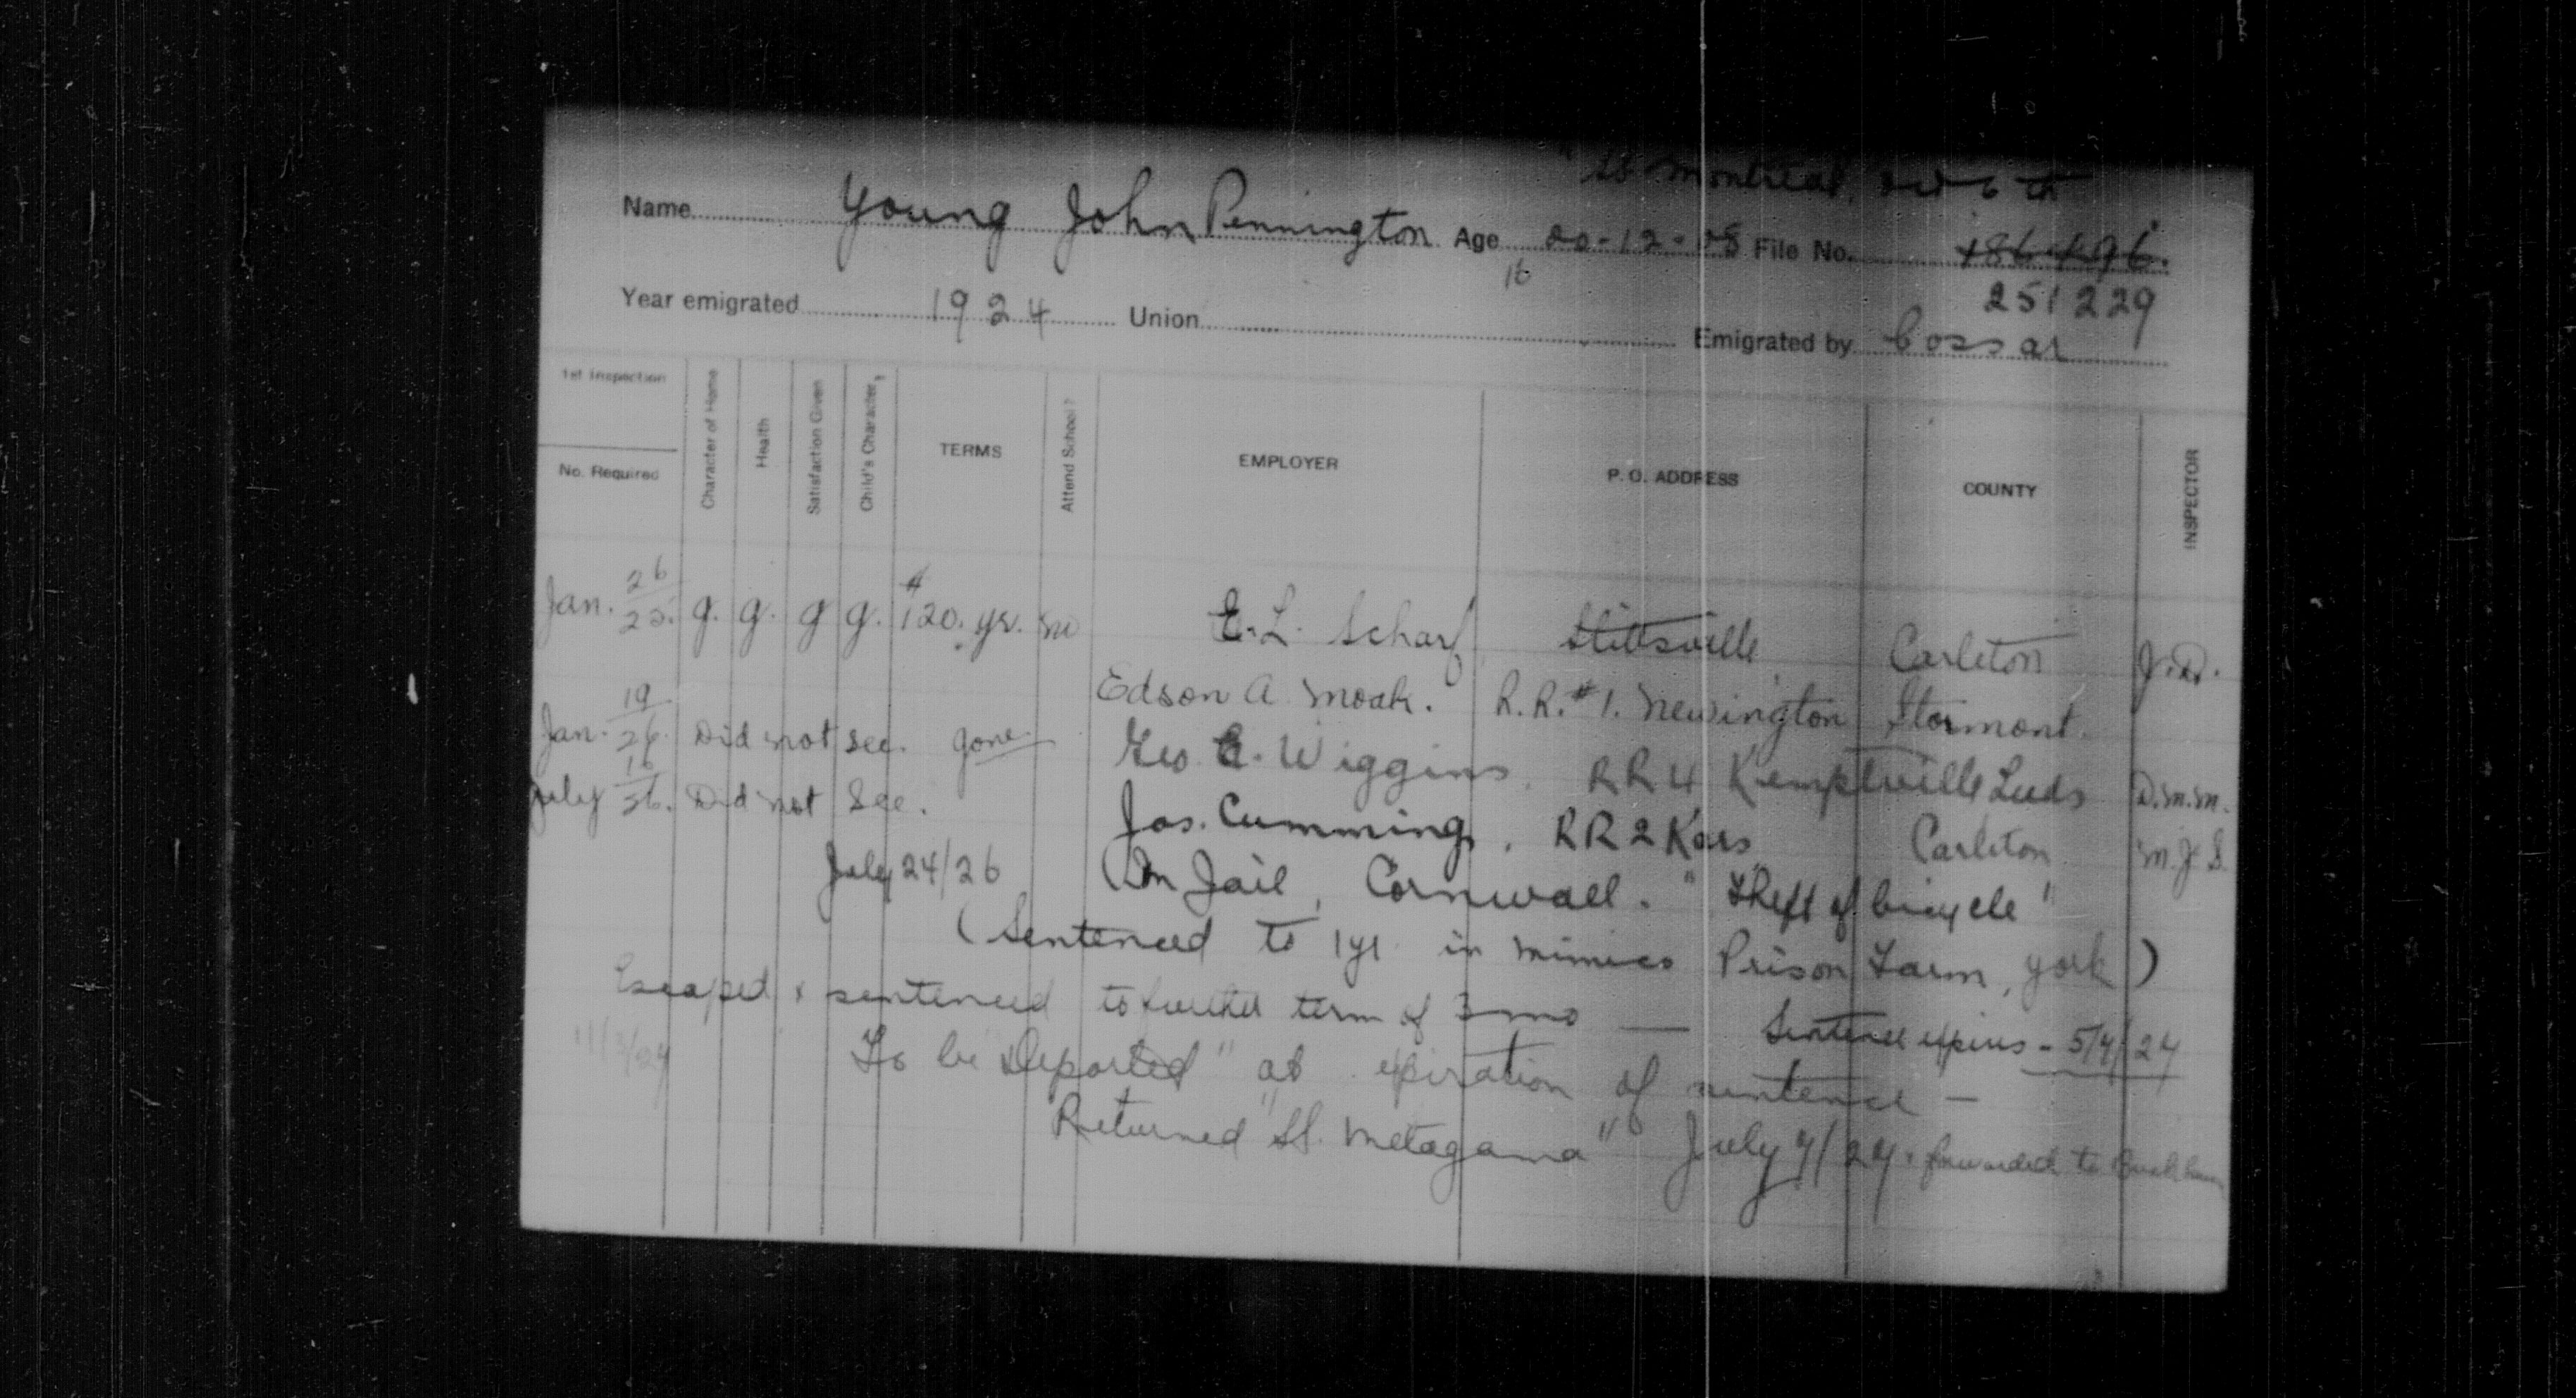 SS. Montreal,
Name Young John Pennington Age 20-12-08 File No. 186496.
16
251229
Year emigrated 1924 Union Emigrated by Cossar
1st Inspection
No. Required
Character of Home
Health
Satisfaction Given
Child's Character
TERMS
Attend School?
EMPLOYER
P. O. ADDRESS
COUNTY
INSPECTOR
Jan. 26/25. g. g. g g. $120. yr. no E. L. Scharf Stittsville Carleton J.D.
Edson A Moak. R.R. #1. Newington Stormont.
Jan. 19/26. Did not see. gone Geo. E. Wiggins. RR 4 Kemptville Leeds D.M.M.
July 16/26. Did not see. Jas. Cumming, RR 2 Kars Carleton M.J.S.
July 24/26 (In Jail, Cornwall. "theft of bicycle"
(Sentenced to 1yr in Mimico Prison Farm, York)
Escaped & sentenced to further term of 3 mo — Sentence expires -
To be "Deported" at expiration of sentence —
Returned "SS. Metagama" July 7/27. forwarded to